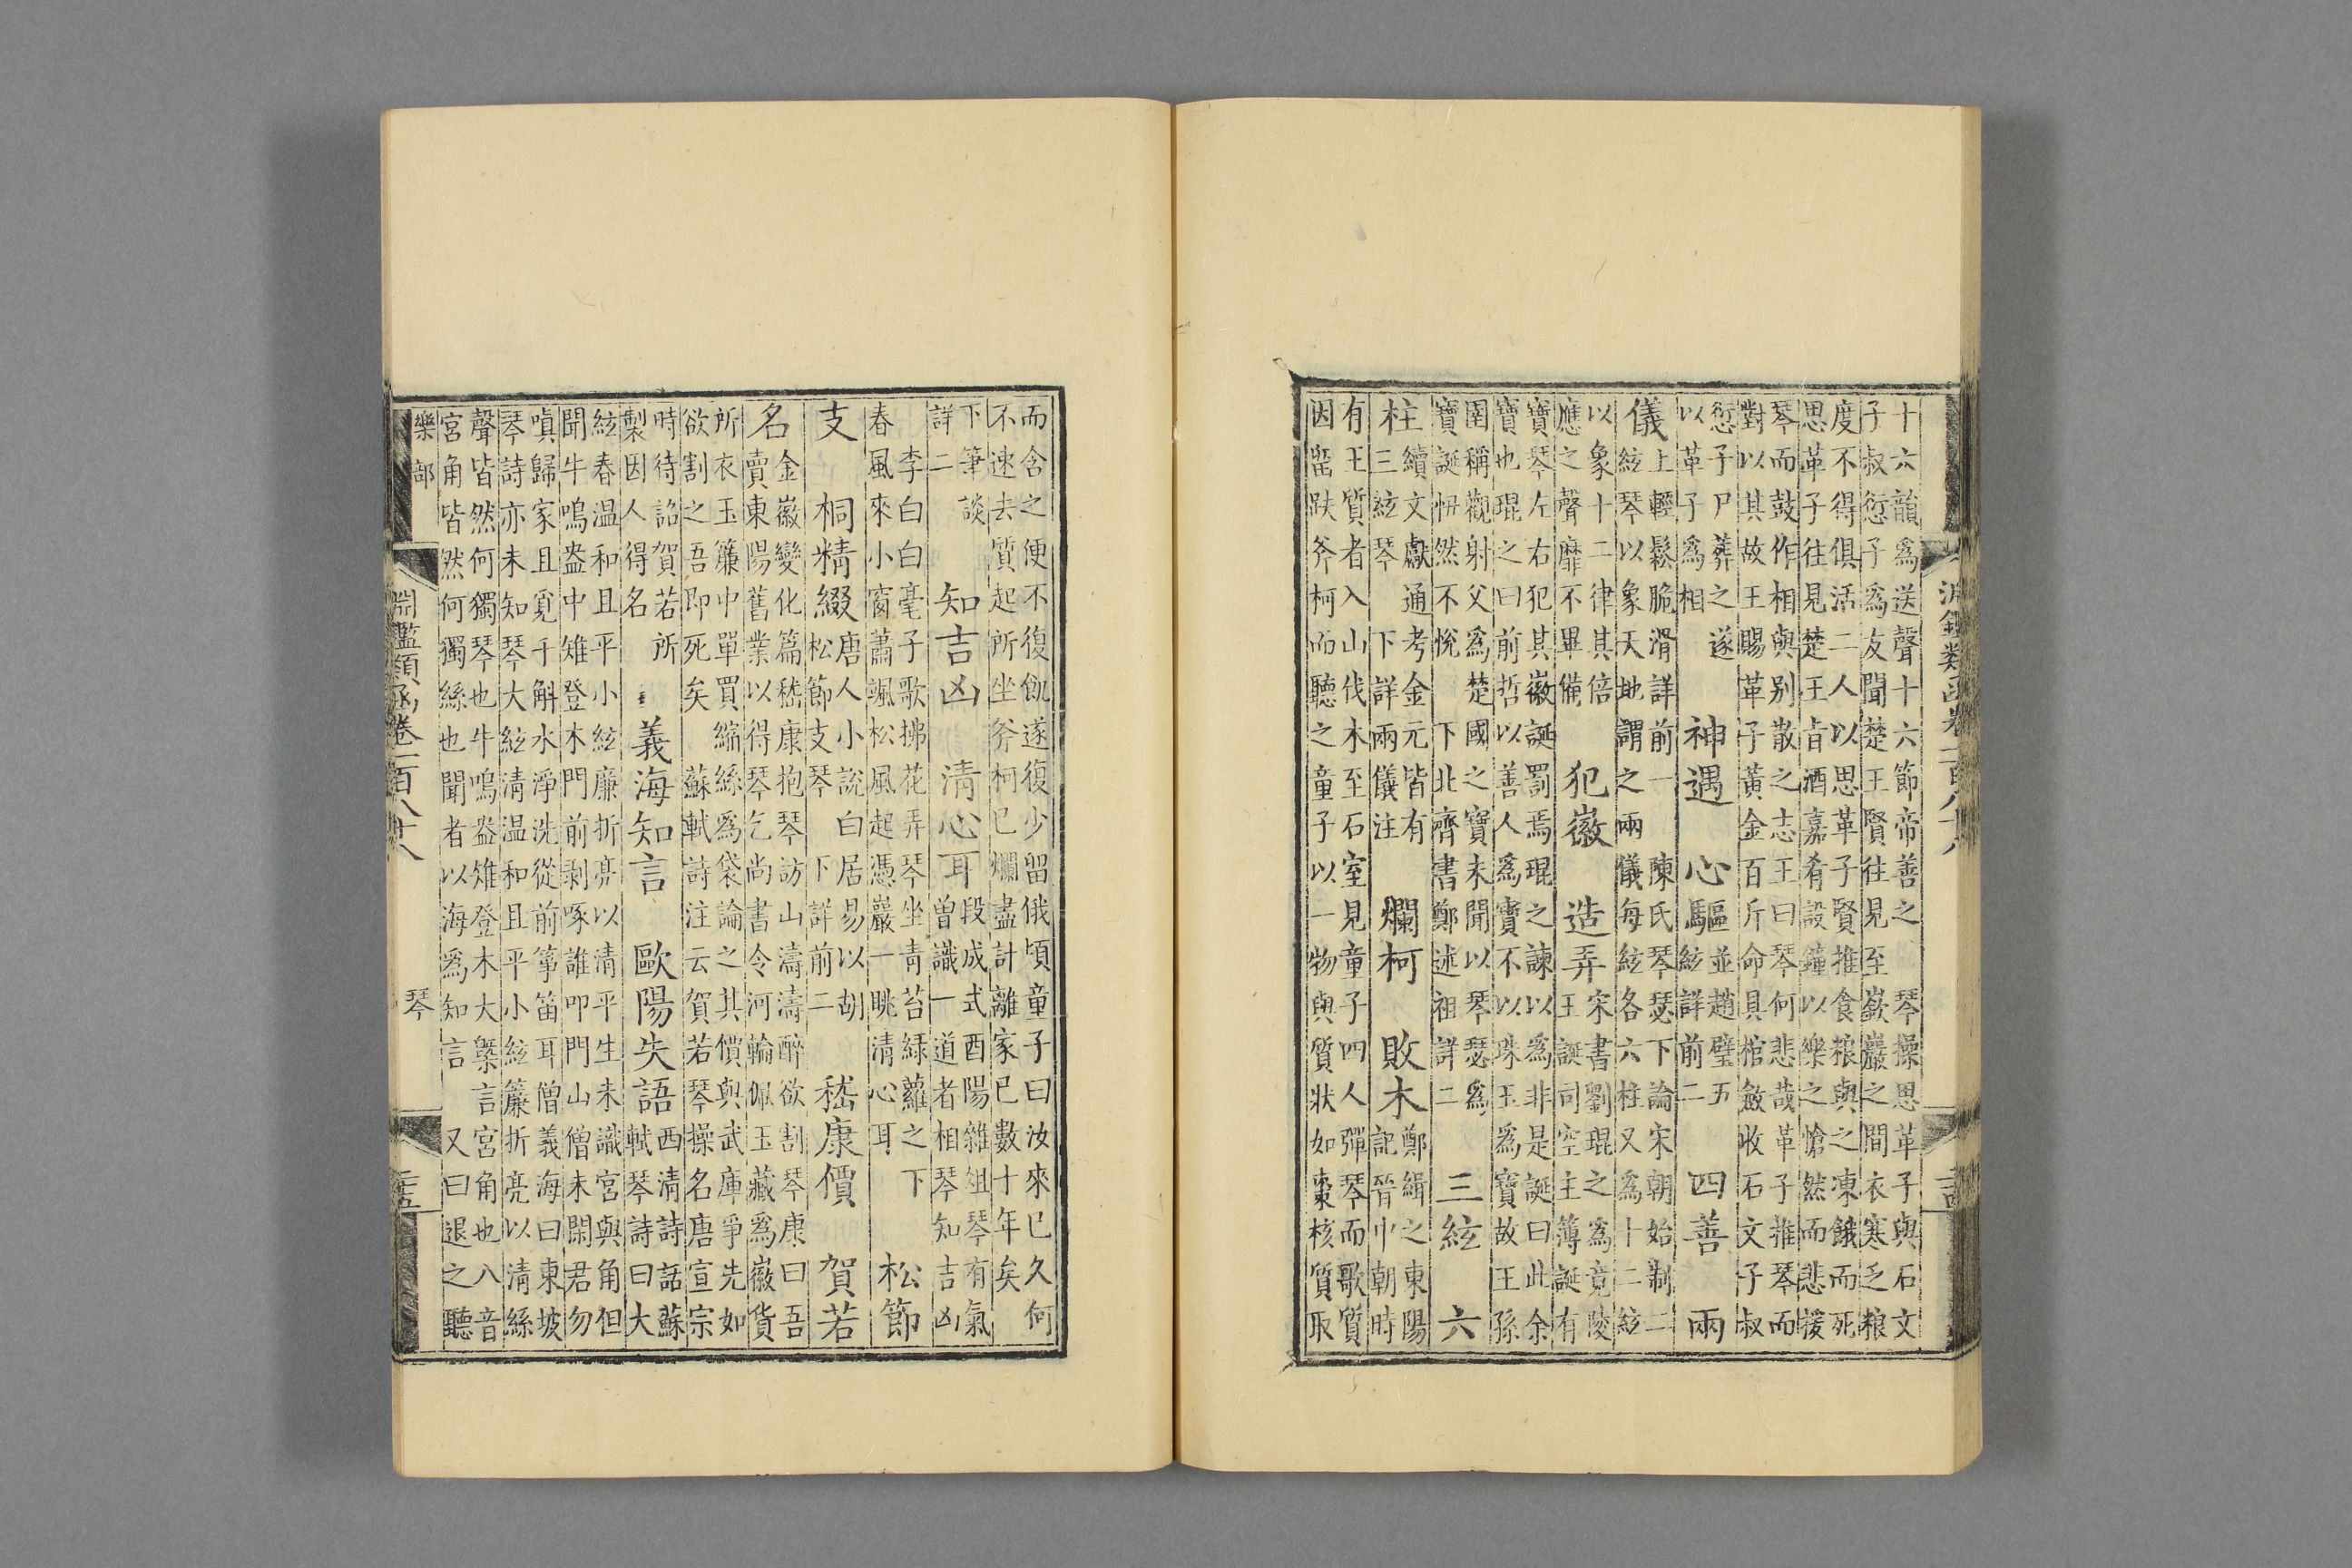 十六韻爲送聲十六節帝善之　琴操思革子與石文
子叔愆子爲友聞楚王賢往見至嶔巖之間衣寒乏粮
度不得俱活二人以思革子賢推食粮與之凍餓而死
思革子往見楚王旨酒嘉肴設鐘以樂之愴然而悲援
琴而鼓作相與别散之志王曰琴何悲哉革子推琴而
對以其故王賜革子黃金百斤命具棺斂收石文子叔
愆子尸葬之遂
以革子爲相
神遇　心驅
並趙璧五
絃詳前二
四善　兩
儀
上輕鬆脆滑詳前一　陳氏琴瑟下論宋朝始制二
絃琴以象天地謂之兩儀每絃各六柱又爲十二絃
以象十二律其倍
應之聲靡不畢備
犯徽　造弄
宋書劉琨之爲竟陵
王誕司空主簿誕有
寶琴左右犯其徽誕罰焉琨之諫以爲非是誕曰此余
寶也琨之曰前哲以善人爲寶不以珠玉爲寶故王孫
圉稱觀射父爲楚國之寶未聞以琴瑟爲
寶誕忸然不悅　下北齊書鄭述祖詳二
三絃　六
柱
續文獻通考金元皆有
三絃琴　下詳兩儀注
爛柯　敗木
鄭緝之東陽
記晉中朝時
有王質者入山伐木至石室見童子四人彈琴而歌質
因畱趺斧柯而聽之童子以一物與質狀如棗核質取
淵鑑類函卷一百八十八
而含之便不復飢遂復少留俄頃童子曰汝來已久何
不速去質起所坐斧柯已爛盡計離家已數十年矣
下筆談
詳二
知吉凶　清心耳
段成式酉陽雜俎琴有氣
曾識一道者相琴知吉凶
李白白毫子歌拂花弄琴坐青苔綠蘿之下
春風來小窗蕭颯松風起憑巖一眺清心耳
松節
支　桐精綴
唐人小說白居易以胡
松節支琴　下詳前二
嵇康價　賀若
名
金徽變化篇嵇康抱琴訪山濤濤醉欲割琴康曰吾
賣東陽舊業以得琴乞尚書令河輪佩玉藏爲徽貨
所衣玉簾中單買縮絲爲袋論之其價與武庫爭先如
欲割之吾即死矣　蘇軾詩注云賀若琴操名唐宣宗
時待詔賀若所
製因人得名
義海知言　歐陽失語
西清詩話蘇
軾琴詩曰大
絃春温和且平小絃廉折亮以清平生未識宮與角但
聞牛鳴盎中雉登木門前剥啄誰叩門山僧未閑君勿
嗔歸家且覓千斛水淨洗從前箏笛耳僧義海曰東坡
琴詩亦未知琴大絃清温和且平小絃簾折亮以清絲
聲皆然何獨琴也牛鳴盎雉登木大槩言宮角也八音
宮角皆然何獨絲也聞者以海爲知言　又曰退之聽
樂部
淵鑑類函卷一百八十八
琴